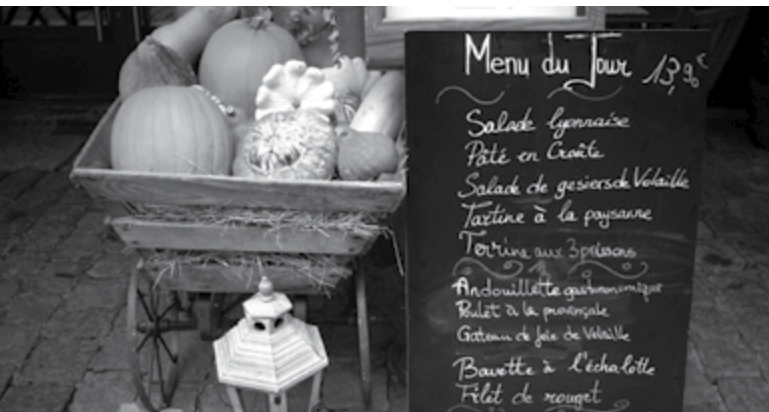 Menu du Jour 13,90€
Salade lyonnaise
Pâté en Croûte
Salade de gesiers de Volaille
Tartine à la paysanne
Terrine aux 3 poissons
Andouillette gastronomique
Poulet à la provençale
Gateau de foie de Volaille
Bavette à l'échalotte
Filet de rouget